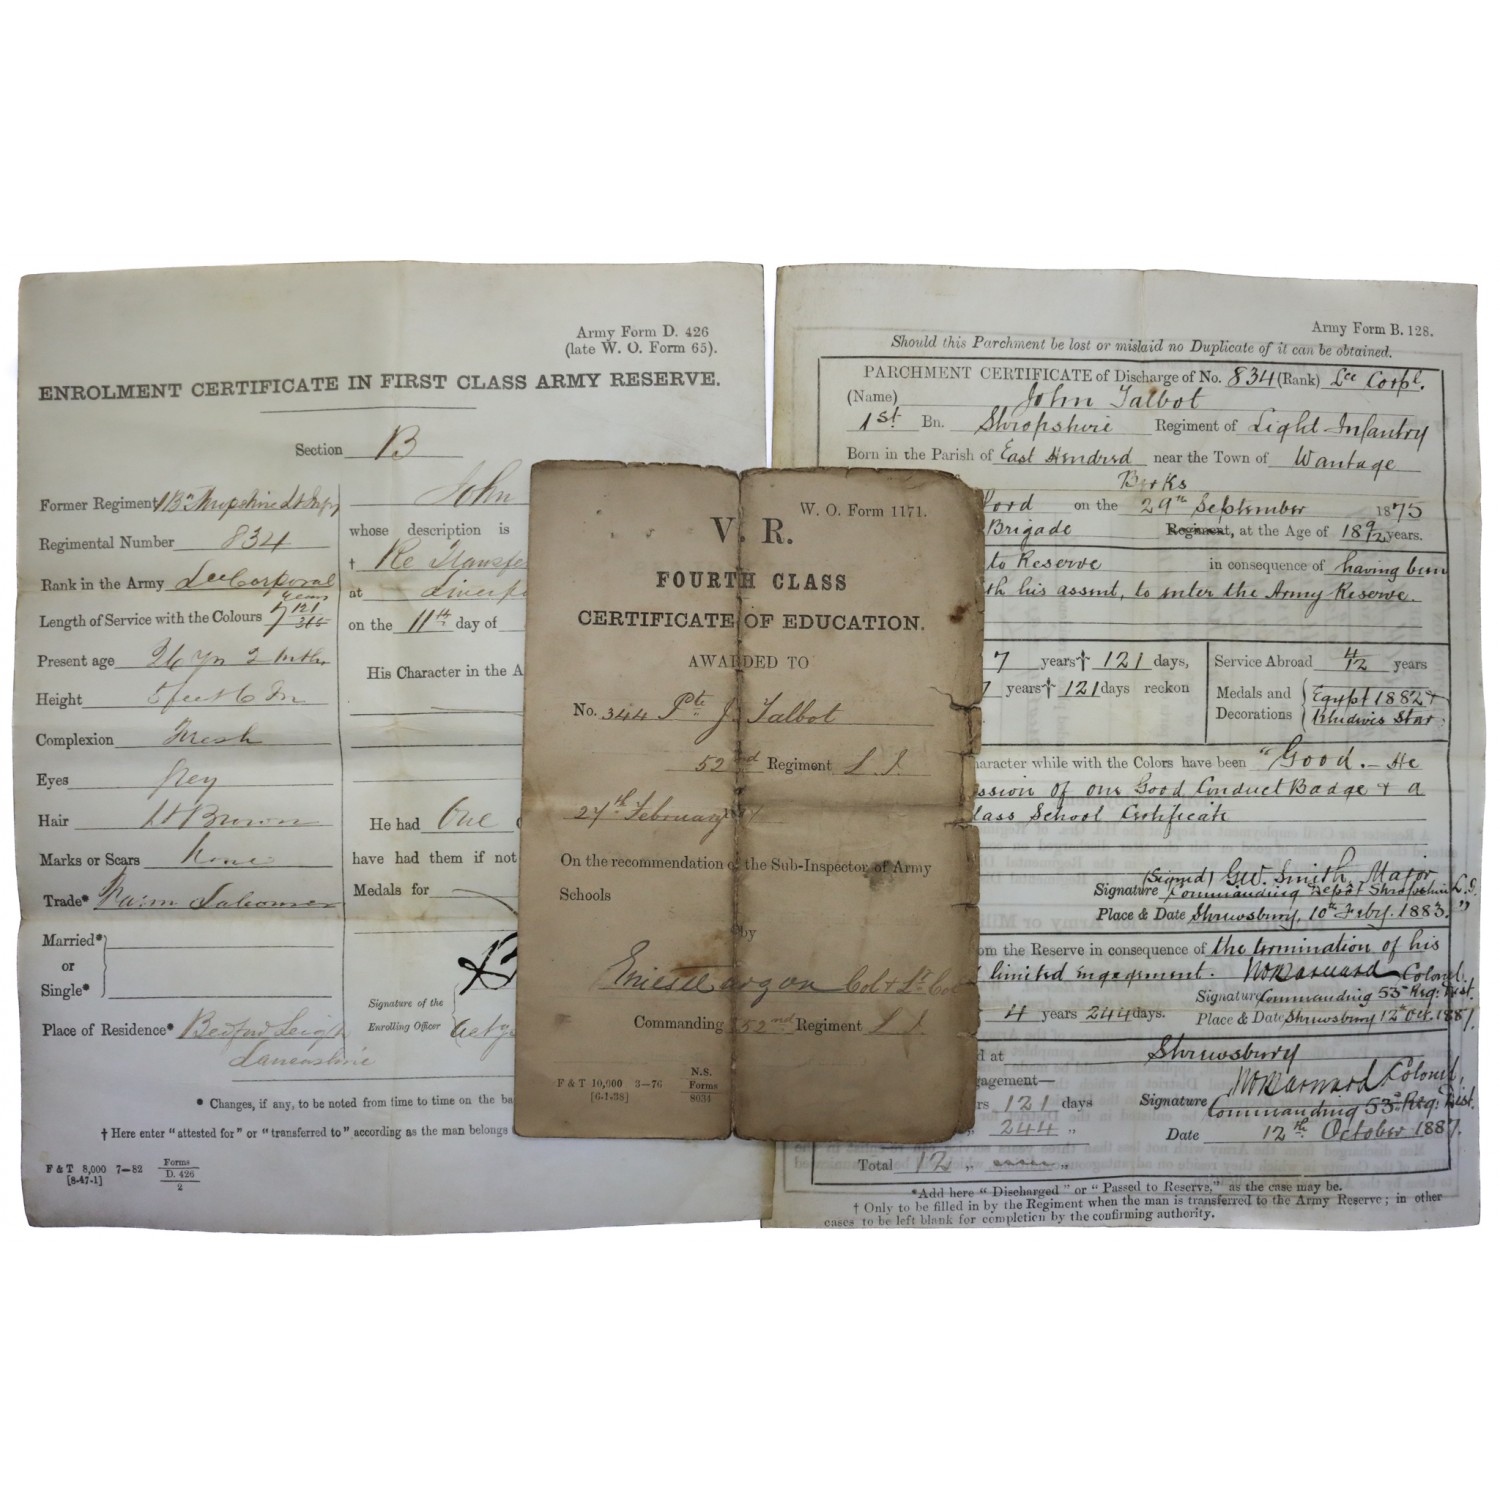 Army Form D. 426
(late W. O. Form 65).
ENROLMENT CERTIFICATE IN FIRST CLASS ARMY RESERVE.
Section B
Former Regiment 1 Bn Shropshire Lt Infy
Regimental Number 834
Rank in the Army Lce Corporal
Length of Service with the Colours 7 years 121/365
Present age 26 yrs 2 mths
Height 5 feet 6 In
Complexion Fresh
Eyes Grey
Hair Lt Brown
Marks or Scars None
Trade* Farm Labourer
Married*
or
Single*
Place of Residence* Bedford Leigh
Lancashire
John
whose description is
† Re Transfe
at Liverpo
on the 11th day of
His Character in the A
He had One
have had them if not
Medals for
Signature of the
Enrolling Officer
* Changes, if any, to be noted from time to time on the ba
† Here enter "attested for" or "transferred to" according as the man belongs
F & T 8,000 7—82 Forms
[8-47-1] D. 426
2
W. O. Form 1171.
V. R.
FOURTH CLASS
CERTIFICATE OF EDUCATION.
AWARDED TO
No. 344 Pte J. Talbot
52nd Regiment L. I.
27th February
On the recommendation of the Sub-Inspector of Army
Schools
by
Col & Lt Col
Commanding 52nd Regiment L I.
F & T 10,000 3—76
[6-1-38]
N.S.
Forms
8034
Army Form B. 128.
Should this Parchment be lost or mislaid no Duplicate of it can be obtained.
PARCHMENT CERTIFICATE of Discharge of No. 834 (Rank) Lce Corpl.
(Name) John Talbot
1st Bn. Shropshire Regiment of Light Infantry
Born in the Parish of East Hendred near the Town of Wantage
Berks
ford on the 29th September 1875
Brigade Regiment, at the Age of 18 9/12 years.
to Reserve in consequence of having been
th his assent, to enter the Army Reserve.
7 years † 121 days,
7 years † 121 days reckon
Service Abroad 4/12 years
Medals and
Decorations
Egypt 1882 &
Khedives Star
haracter while with the Colors have been "Good. — He
ssion of one Good Conduct Badge & a
lass School Certificate
Signature (Signed) Geo. Smith, Major
Commanding Depôt Shropshire L. I.
Place & Date Shrewsbury, 10th Feby. 1883. "
om the Reserve in consequence of the termination of his
limited engagement.
Signature Colonel.
Commanding 53rd Reg: Dist.
4 years 244 days.
Place & Date Shrewsbury 12th Oct. 1887.
d at Shrewsbury
gagement—
rs 121 days
" 244 "
Signature Colonel,
Commanding 53rd Reg: Dist.
Date 12th October 1887.
Total 12 " "
*Add here "Discharged" or "Passed to Reserve," as the case may be.
† Only to be filled in by the Regiment when the man is transferred to the Army Reserve; in other
cases to be left blank for completion by the confirming authority.